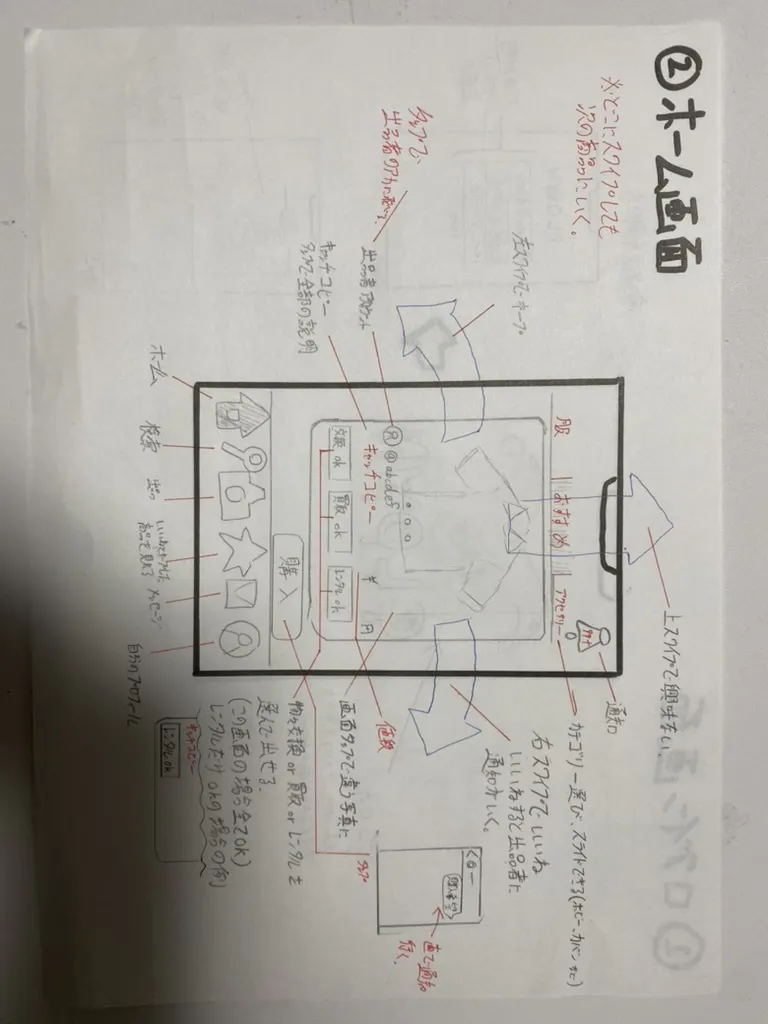 ②ホーム画面
※どこにスワイプしても
次の商品にいく。
タップで、
出品者のアカに飛べる。
左スワイプでキープ
上スワイプで興味ない
出品者アカウント
キャッチコピー
タップで全部の説明
通知
カテゴリー選び、スライドできる(ホビー、カバンなど)
服
おすすめ
アクセサリー
@abcdef
キャッチコピー
¥ 円
交換ok
買取ok
レンタルok
購入
ホーム
検索
出品
いいねとキープした
商品を見れる
メッセージ
自分のプロフィール
右スワイプでいいね
いいねすると出品者に
通知がいく。
値段
画面タップで違う写真に
物々交換or買取orレンタルを
選んで出せる。
(この画面の場合全てOK)
レンタルだけokの場合の例
キャッチコピー
レンタルok
タップ
直で通知
行く。